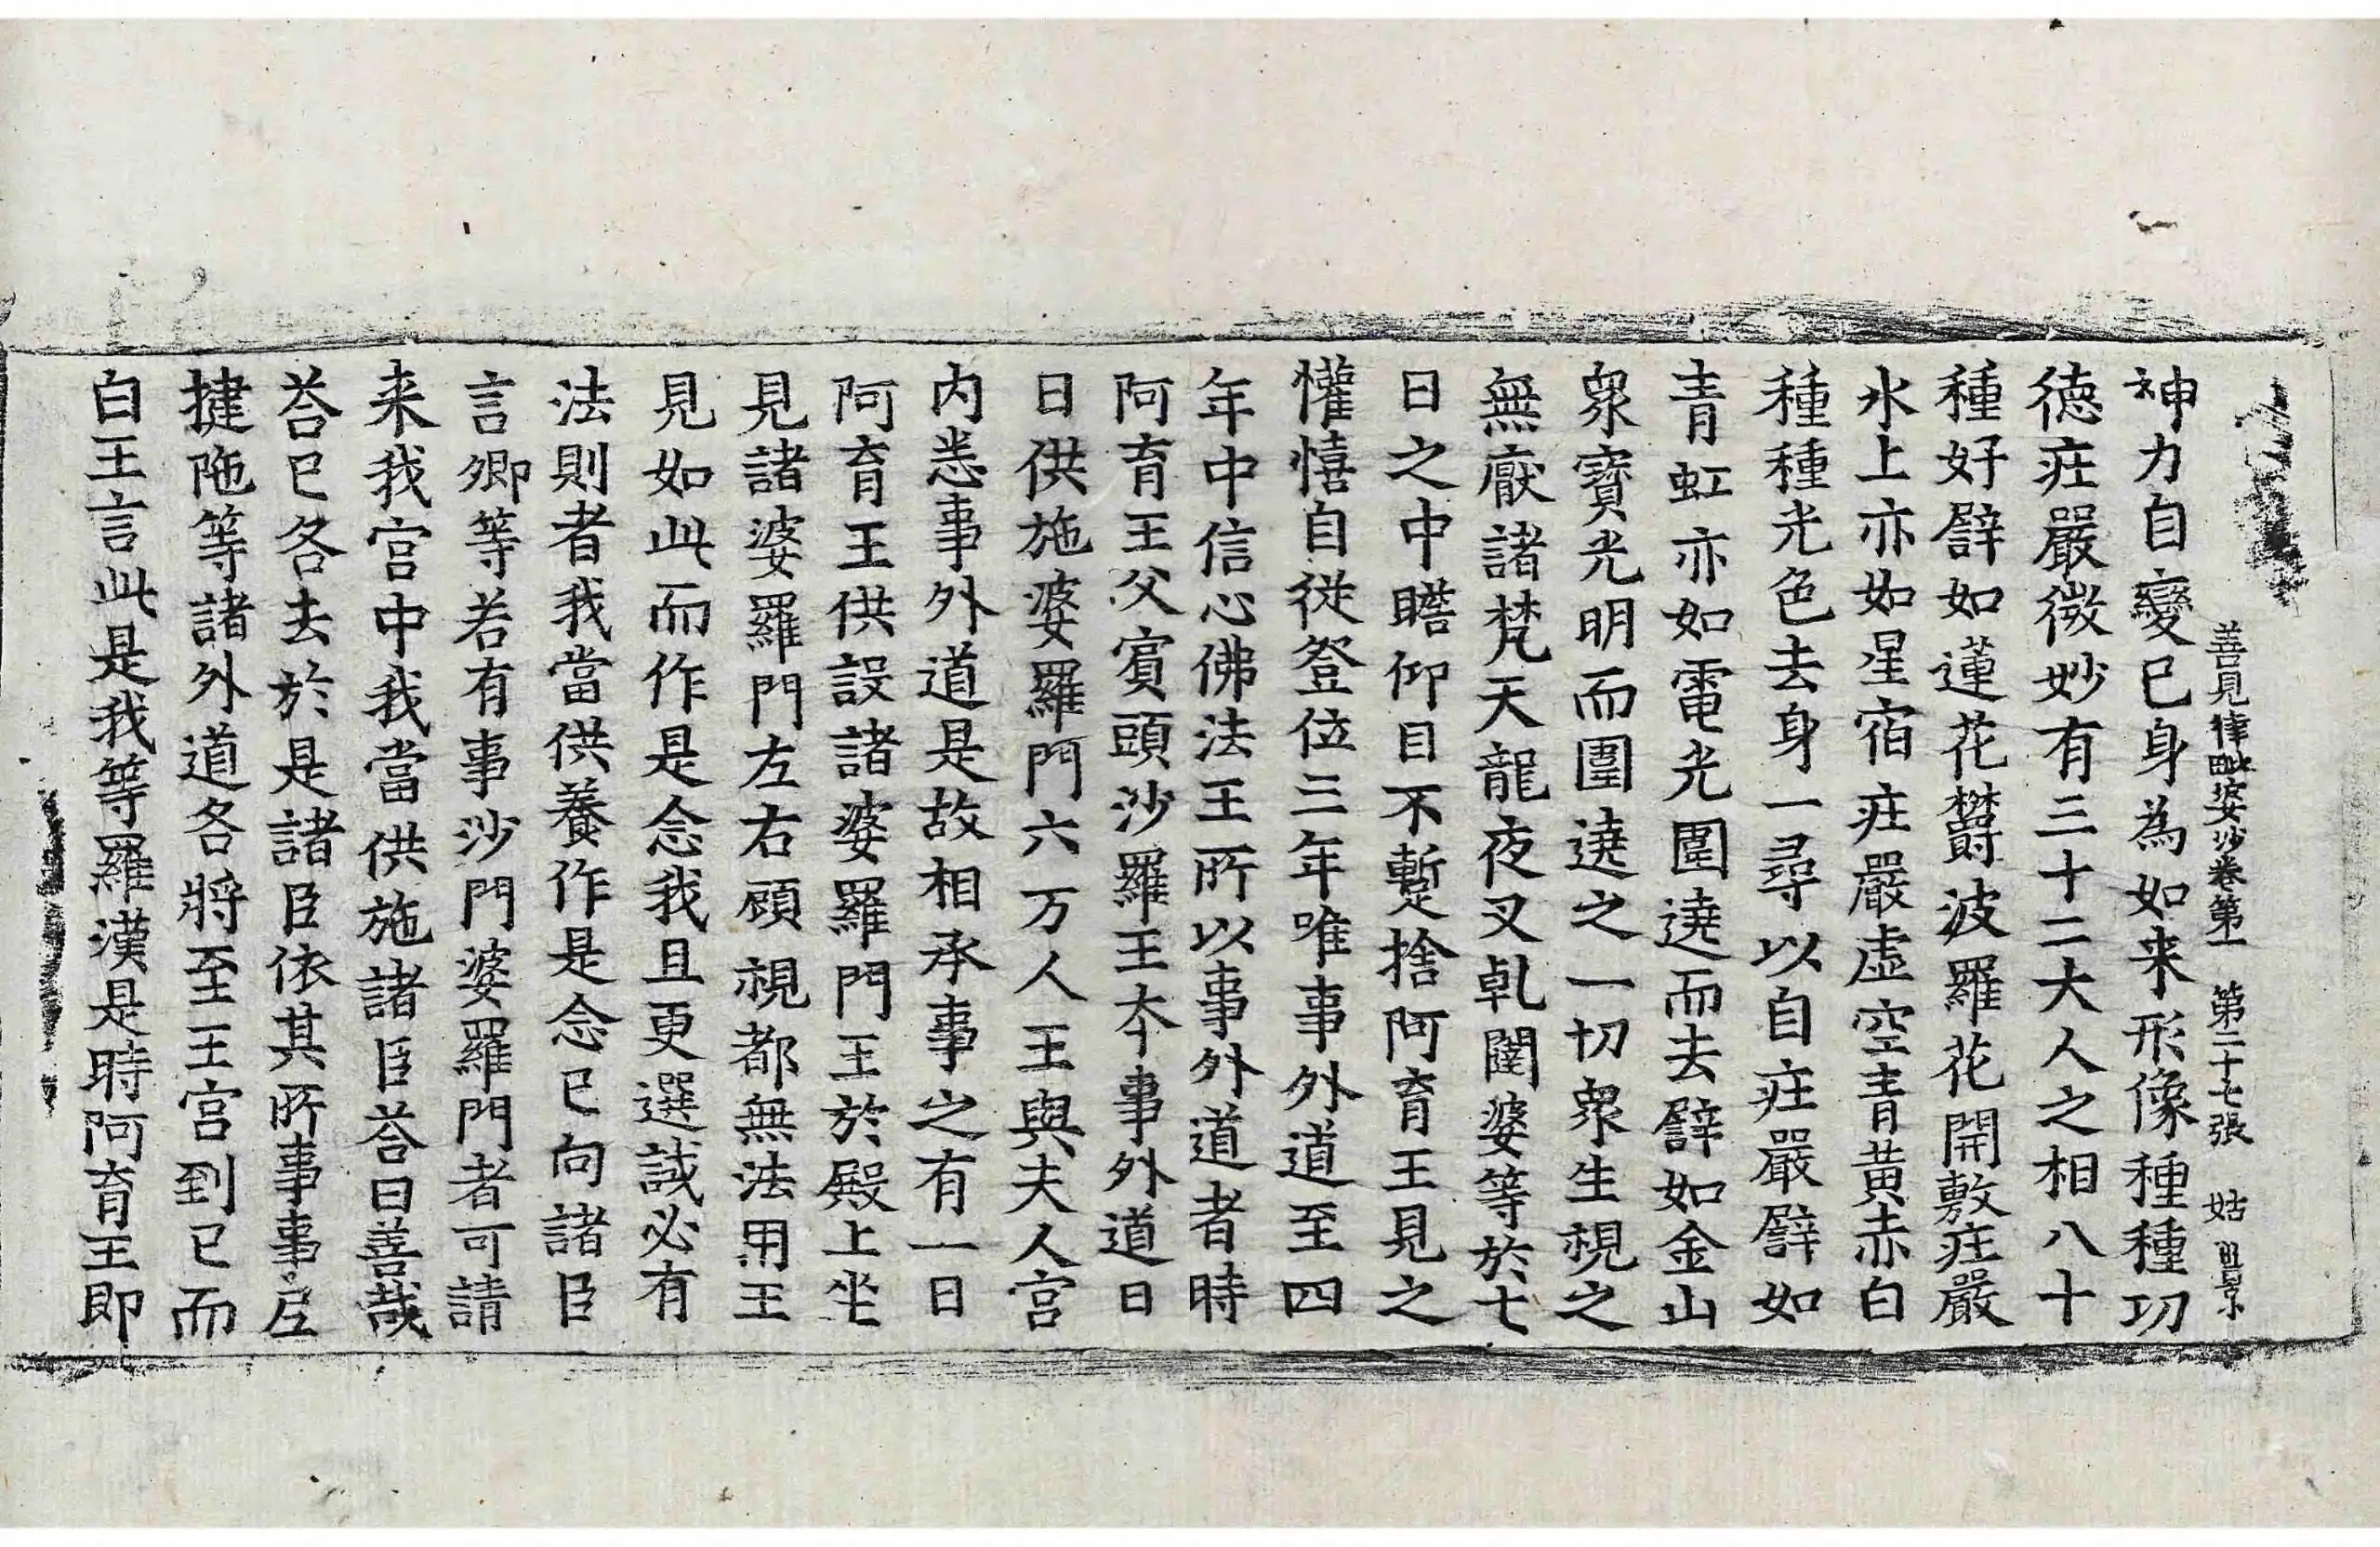 善見律毗婆沙卷第一 第二十七張 姑
神力自變已身為如来形像種種功
德庄嚴微妙有三十二大人之相八十
種好譬如蓮花欝波羅花開敷庄嚴
水上亦如星宿庄嚴虛空青黃赤白
種種光色去身一尋以自庄嚴譬如
青虹亦如電光圍遶而去譬如金山
衆寶光明而圍遶之一切衆生視之
無厭諸梵天龍夜叉乹闥婆等於七
日之中瞻仰目不蹔捨阿育王見之
懽憘自從登位三年唯事外道至四
年中信心佛法王所以事外道者時
阿育王父賓頭沙羅王夲事外道日
日供施婆羅門六万人王與夫人宮
内悉事外道是故相承事之有一日
阿育王供設諸婆羅門王於殿上坐
見諸婆羅門左右顧視都無法用王
見如此而作是念我且更選試必有
法則者我當供養作是念已向諸臣
言卿等若有事沙門婆羅門者可請
来我宮中我當供施諸臣荅曰善哉
荅已各去於是諸臣依其所事事尼
揵陁等諸外道各將至王宮到已而
白王言此是我等羅漢是時阿育王即